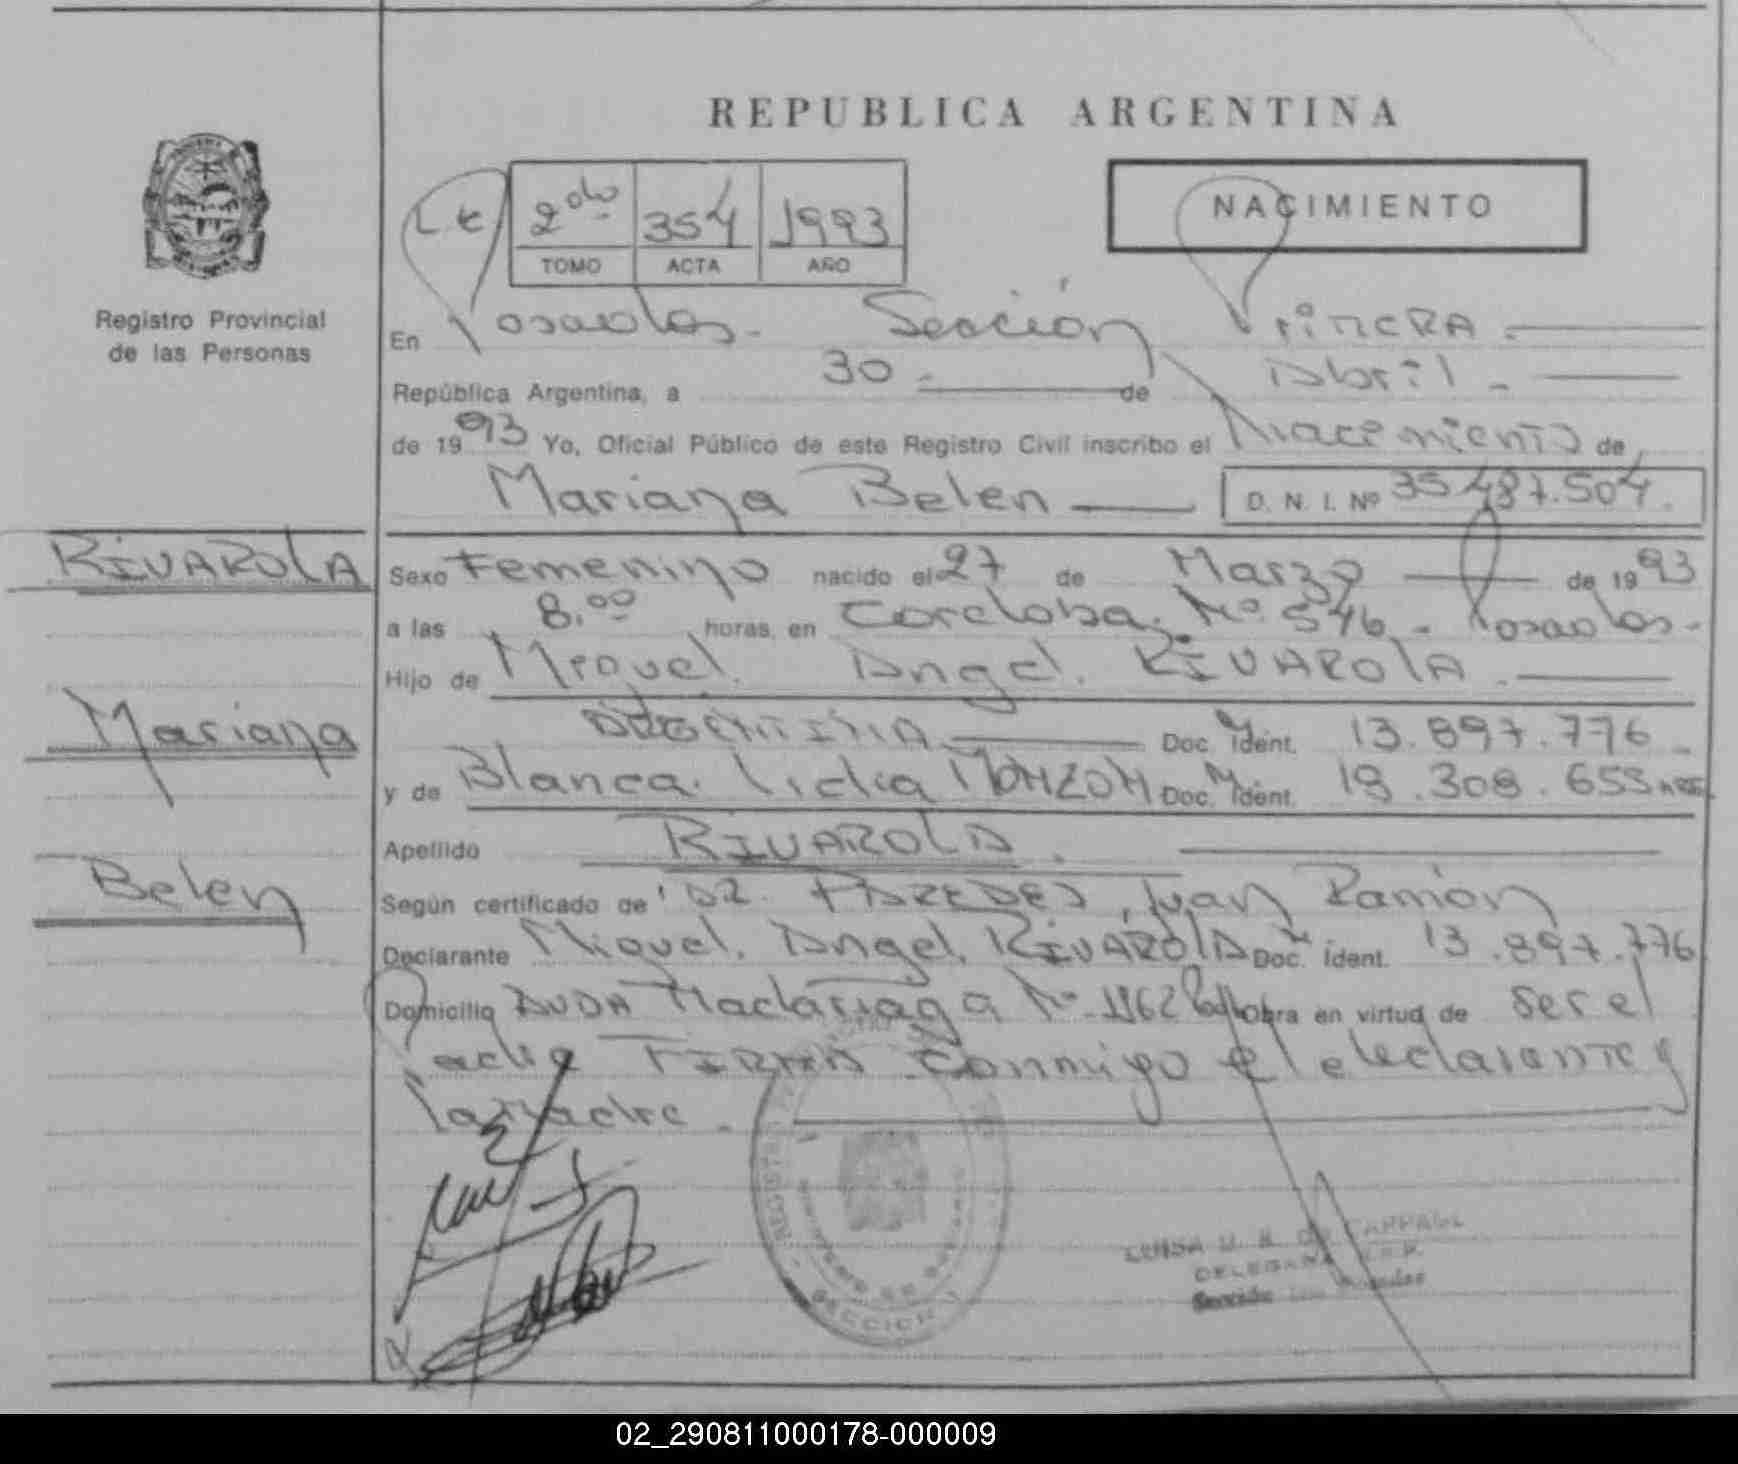 REPUBLICA ARGENTINA
L.C. 2do 354 1993
TOMO ACTA AÑO
NACIMIENTO
Registro Provincial
de las Personas
En Posadas. Sección Primera.
República Argentina, a 30 de Abril
de 1993 Yo, Oficial Público de este Registro Civil inscribo el Nacimiento de
Mariana Belen D. N. I. Nº 35.487.504.
RIVAROLA
Mariana
Belen
Sexo Femenino nacido el 27 de Marzo de 1993
a las 8,00 horas, en Cordoba. Nº 546. Posadas.
Hijo de Miguel Angel. RIVAROLA.
ARGENTINA Doc. Ident. 13.897.776
y de Blanca Lidia MONZON Doc. Ident. 18.308.653
Apellido RIVAROLA.
Según certificado de DR. PAREDES, Juan Ramón
Declarante Miguel. Angel. RIVAROLA Doc. Ident. 13.897.776
Domicilio AVDA Madariaga Nº 1162 Obra en virtud de ser el
Padre FIRMA conmigo el declarante y
la madre.
REGISTRO
SECCION 1
LUISA
DELEGADA
Sección
02_290811000178-000009